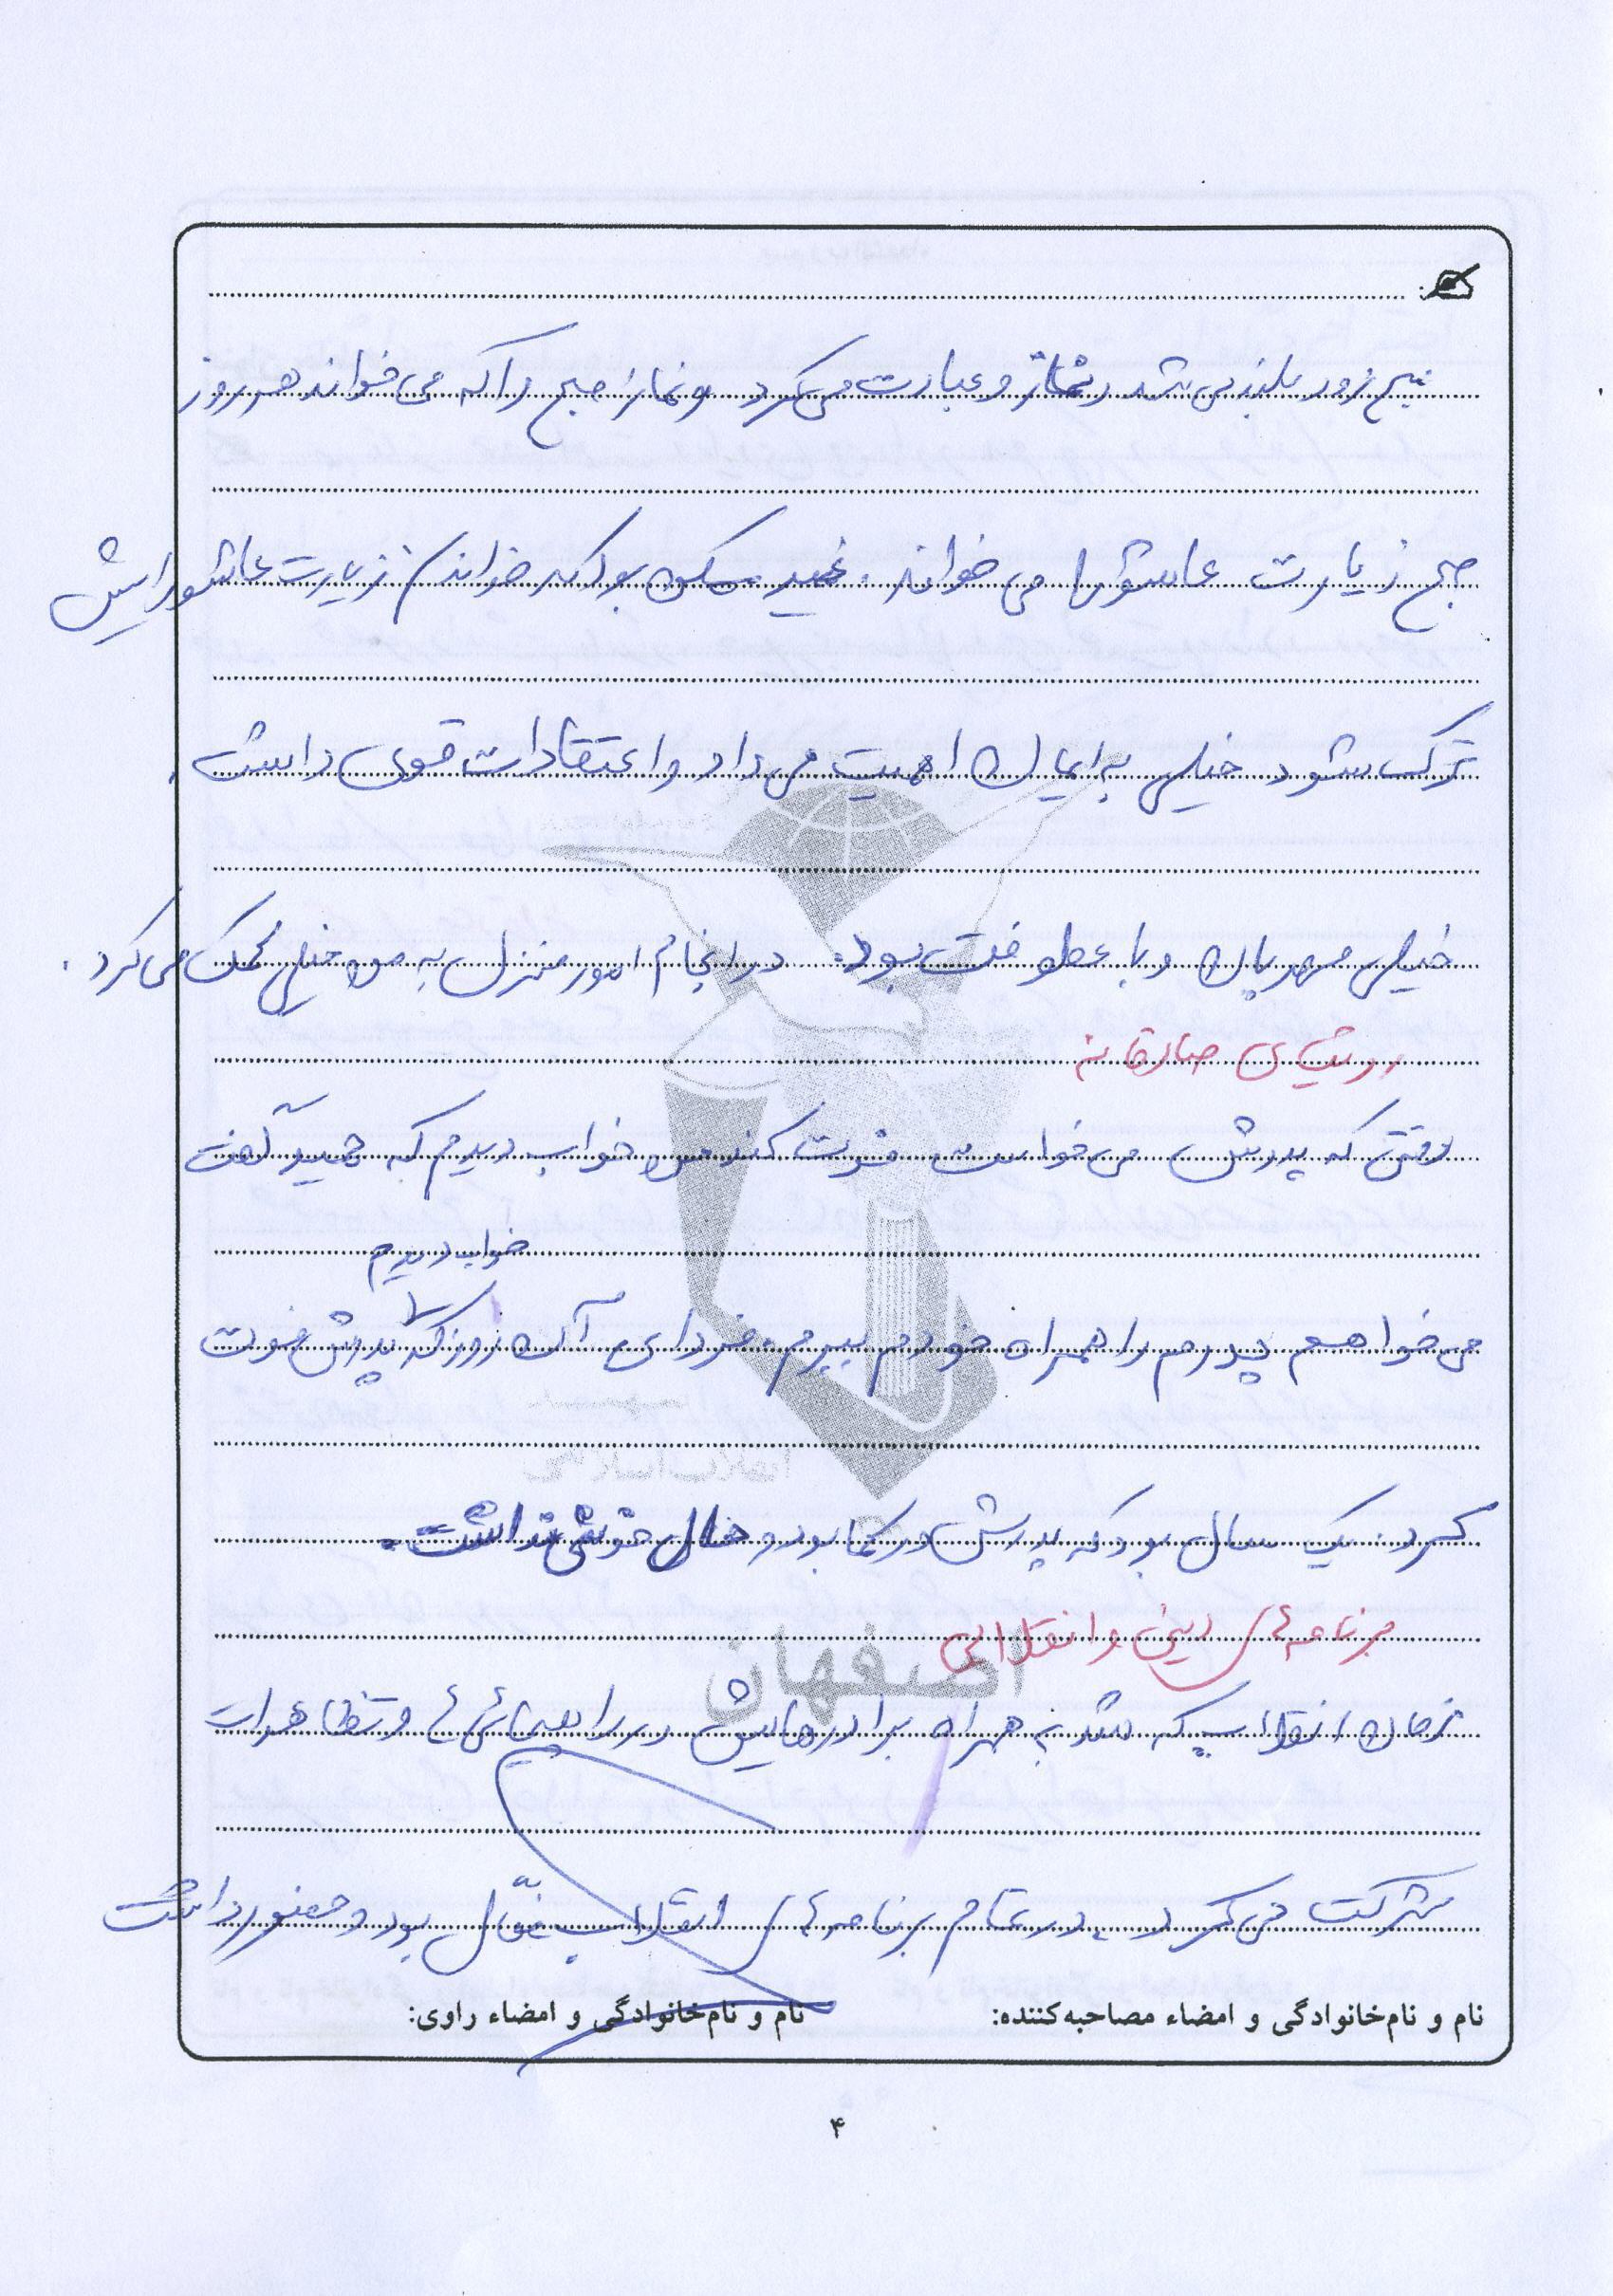 صبح زود بلند می‌شد و نماز و عبادت می‌کرد و نماز صبح را که می‌خواند هر روز
صبح زیارت عاشورا می‌خواند. غیر ممکن بود که خواندن زیارت عاشورایش
ترک شود خیلی به ایمان اهمیت می‌داد و اعتقادات قوی داشت.
خیلی مهربان و با عطوفت بود. در انجام امور منزل به من خیلی کمک می‌کرد.
رؤیای صادقانه
وقتی که پدرش می‌خواست فوت کند من خواب دیدم که حمید گفت
خواب دیدم
می‌خواهم پدرم را همراه خودم ببرم. فردای آن روز که پدرش فوت
کرد. یک سال بود که پدرش در کما بود و حال خوشی نداشت.
برنامه‌های دینی و انقلابی
زمان انقلاب که شد به همراه برادرهایش در راهپیمائی‌ها و تظاهرات
شرکت می‌کرد. در تمام برنامه‌های انقلاب فعّال بود و حضور داشت
نام و نام‌خانوادگی و امضاء مصاحبه‌کننده: نام و نام‌خانوادگی و امضاء راوی:
۴
اصفهان